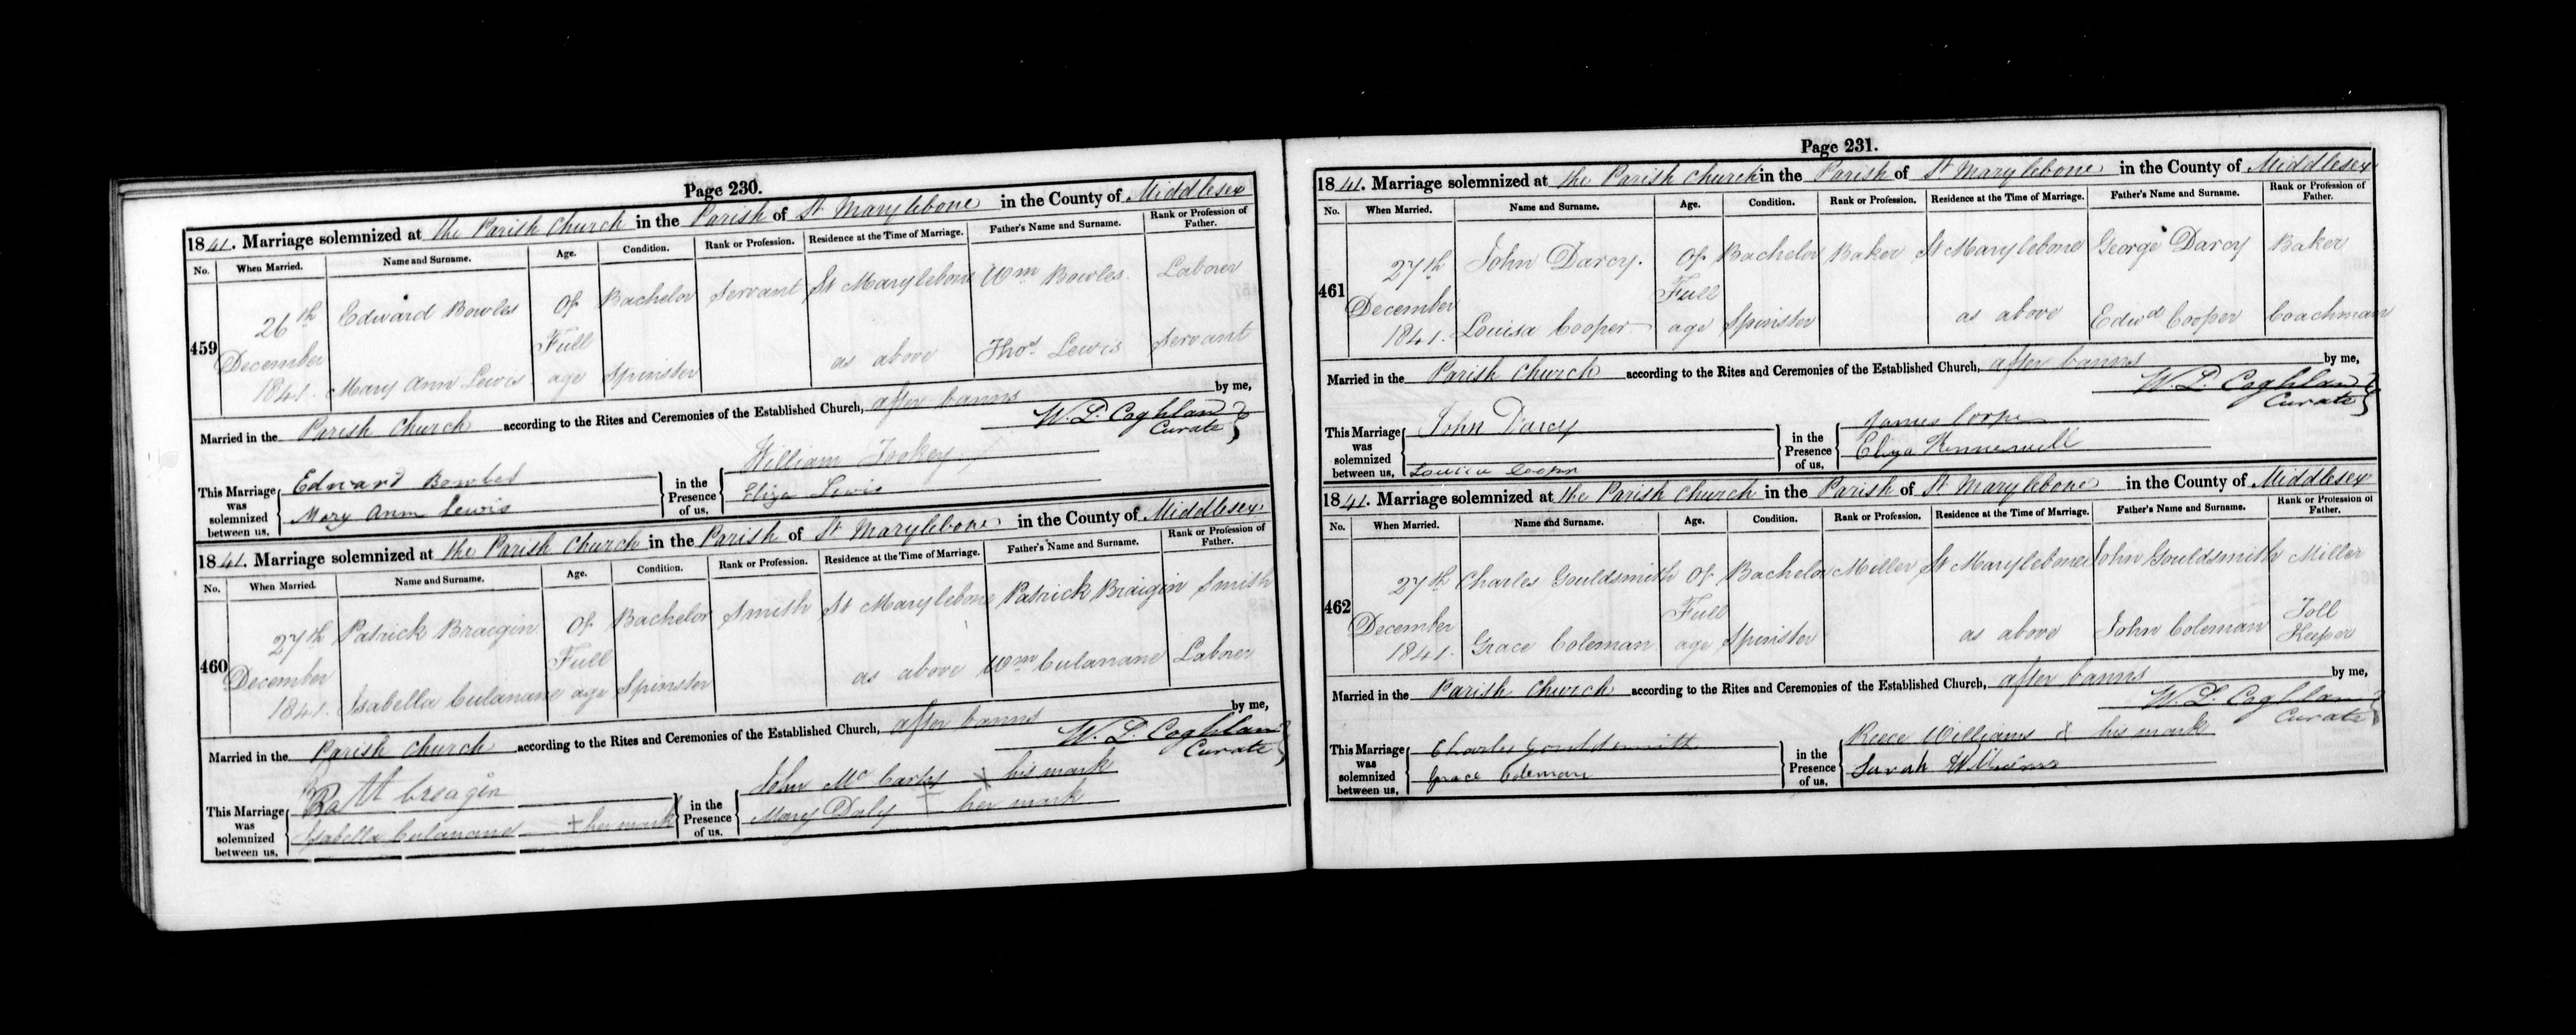 Page 230.
1841. Marriage solemnized at the Parish Church in the Parish of St Marylebone in the County of Middlesex
No. When Married. Name and Surname. Age. Condition. Rank or Profession. Residence at the Time of Marriage. Father's Name and Surname. Rank or Profession of Father.
459 26th December 1841. Edward Bowles Of Full age Bachelor Servant St Marylebone Wm Bowles. Laborer
Mary Ann Lewis Spinster as above Thos Lewis Servant
Married in the Parish Church according to the Rites and Ceremonies of the Established Church, after banns by me,
W. L. Coghlan Curate
This Marriage was solemnized between us, Edward Bowles Mary Ann Lewis in the Presence of us, William Eliza Lewis
1841. Marriage solemnized at the Parish Church in the Parish of St Marylebone in the County of Middlesex
No. When Married. Name and Surname. Age. Condition. Rank or Profession. Residence at the Time of Marriage. Father's Name and Surname. Rank or Profession of Father.
460 27th December 1841. Patrick Braigin Of Full age Bachelor Smith St Marylebone Patrick Braigin Smith
Isabella Culanane Spinster as above Wm Culanane Laborer
Married in the Parish Church according to the Rites and Ceremonies of the Established Church, after banns by me,
W. L. Coghlan Curate
This Marriage was solemnized between us, Patt breagin Isabella Culanane + her mark in the Presence of us, John Mc Carty x his mark Mary Daly + her mark
Page 231.
1841. Marriage solemnized at the Parish Church in the Parish of St Marylebone in the County of Middlesex
No. When Married. Name and Surname. Age. Condition. Rank or Profession. Residence at the Time of Marriage. Father's Name and Surname. Rank or Profession of Father.
461 27th December 1841. John Darcy. Of Full age Bachelor Baker St Marylebone George Darcy Baker
Louisa Cooper Spinster as above Edwd Cooper Coachman
Married in the Parish Church according to the Rites and Ceremonies of the Established Church, after banns by me,
W. L. Coghlan Curate
This Marriage was solemnized between us, John Darcy Louisa Cooper in the Presence of us, James Eliza
1841. Marriage solemnized at the Parish Church in the Parish of St Marylebone in the County of Middlesex
No. When Married. Name and Surname. Age. Condition. Rank or Profession. Residence at the Time of Marriage. Father's Name and Surname. Rank or Profession of Father.
462 27th December 1841. Charles Gouldsmith Of Full age Bachelor Miller St Marylebone John Gouldsmith Miller
Grace Coleman Spinster as above John Coleman Toll Keeper
Married in the Parish Church according to the Rites and Ceremonies of the Established Church, after banns by me,
W. L. Coghlan Curate
This Marriage was solemnized between us, Charles Gouldsmith Grace Coleman in the Presence of us, Reece Williams x his mark Sarah Williams